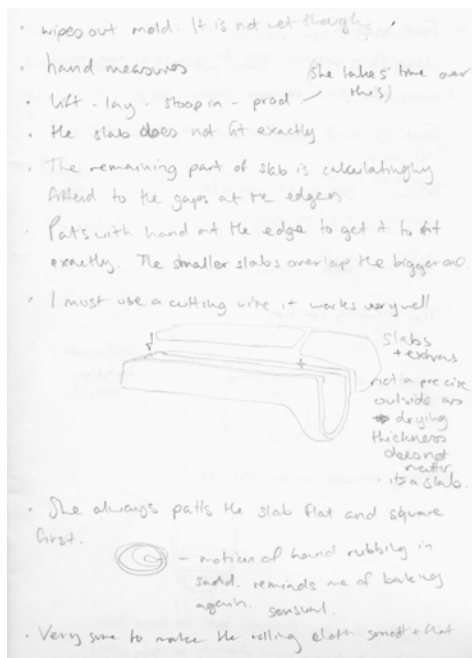 · wipes out mold. It is not wet though.
· hand measures
· lift - lay - stoop in - prod
(she takes time over
this)
· the slab does not fit exactly
· The remaining part of slab is calculatinghy
fitted to the gaps at the edges.
· Pats with hand at the edge to get it to fit
exactly. The smaller slabs overlap the bigger one.
· I must use a cutting wire it works very well
slabs
+ extras
not a precise
outside as
drying
thickness
does not
matter
its a slab.
· She always patts the slab flat and square
first.
- motion of hand rubbing in
sadd. reminds me of baking
again. sensual.
· Very sure to make the rolling cloth smooth + flat